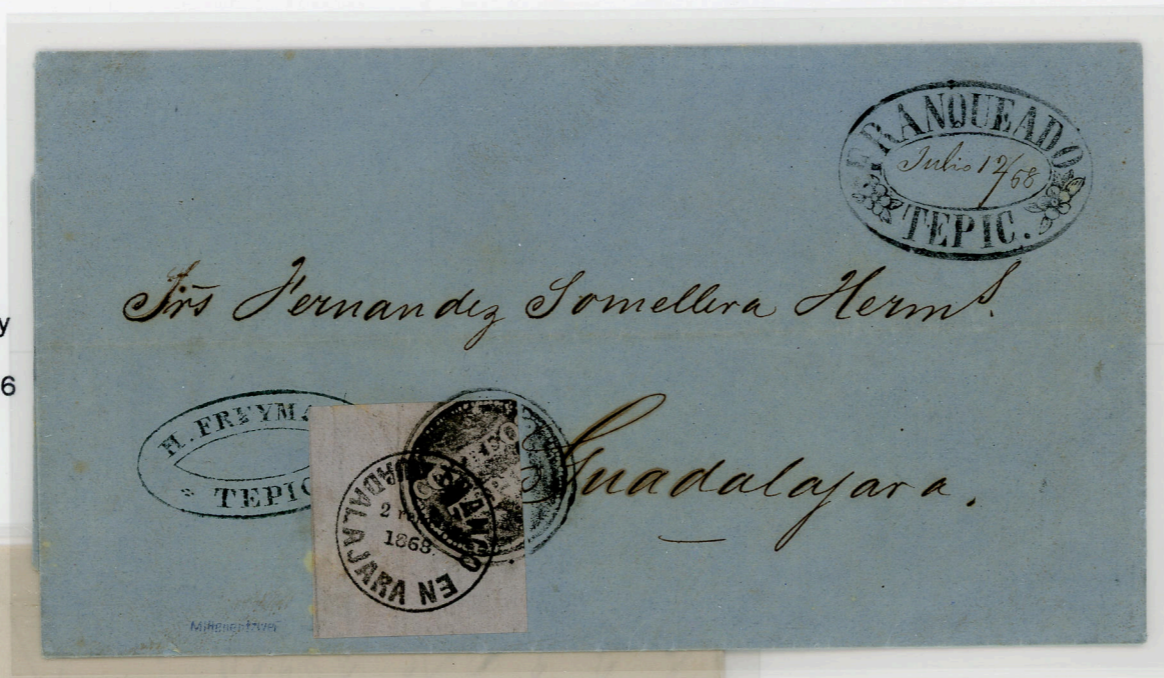 FRANQUEADO
Julio 12/68
TEPIC.
Srs Fernandez Somellera Herms.
y
6
H. FREYMA
TEPIC
Guadalajara.
FRANCO EN GUADALAJARA
2 r
1868.